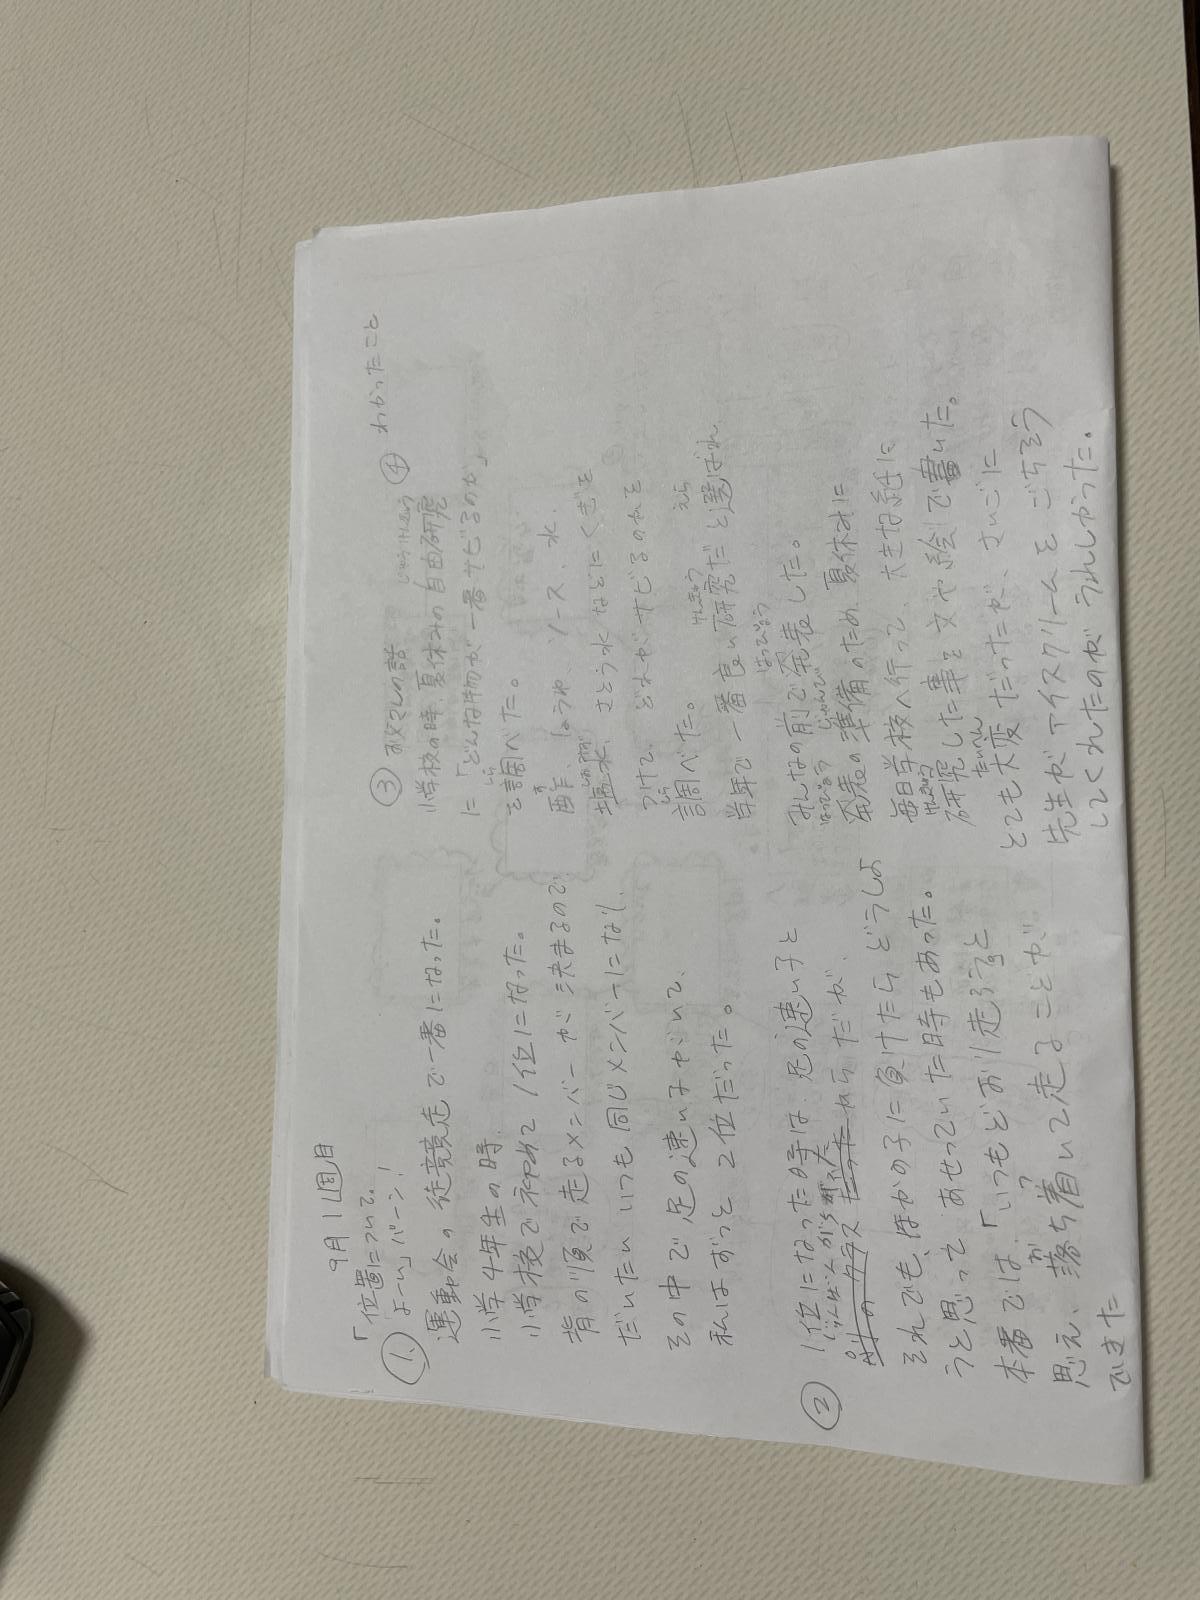 9月1週目
「位置について。
① よーい」バーン!
運動会の徒競走で一番になった。
小学4年生の時、
小学校で初めて1位になった。
背の順で走るメンバーが決まるので
だいたいいつも同じメンバーになり、
その中で足の速い子がいて、
私はずっと2位だった。
② 1位になった時は、足の速い子と
じゅんばんがちがった
別のクラスだったからだが、
それでも、ほかの子に負けたらどうしよ
うと思ってあせっていた時もあった。
本番では、「いつもどおり走ろう」と
思え、落ち着いて走ることが
できた
③ お父さんの話
小学校の時、夏休みの自由研究
じゆうけんきゅう
に「どんな物が一番サビるのか」
を調べた。
しら
酢、しょうゆ、ソース、水、
す
塩水、さとう水などにくぎを
つけて、どれがサビるのかを
調べた。
しら
学年で一番良い研究だと選ばれ
けんきゅう えら
みんなの前で発表した。
はっぴょう
発表の準備のため、夏休みに
はっぴょう じゅんび
毎日学校へ行って、大きな紙に
研究した事を文や絵で書いた。
けんきゅう
とても大変だったが、さいごに
たいへん
先生がアイスクリームをごちそう
してくれたのがうれしかった。
④ わかったこと